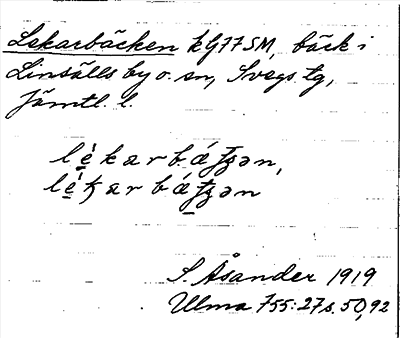 Lekarbäcken kG77SM, bäck i
Linsälls by o. sn, Svegs tg,
Jämtl. l.
S. Åsander 1919
Ulma 755:27 s. 50, 92